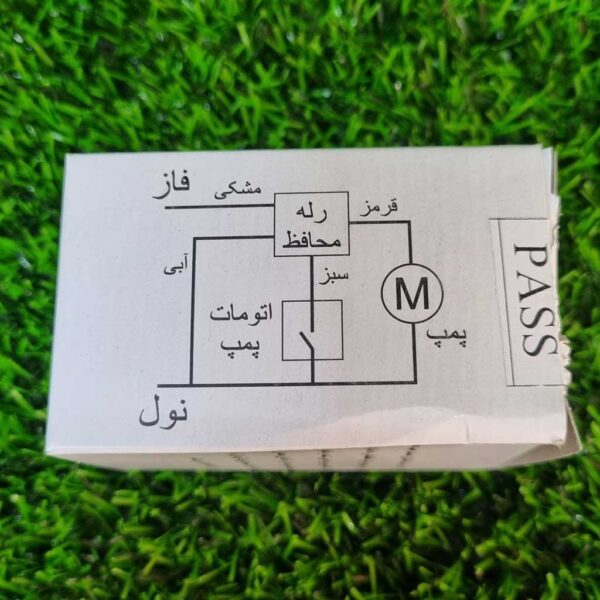 فاز
مشکی
رله
محافظ
قرمز
آبی
سبز
اتومات
پمپ
M
پمپ
نول
PASS